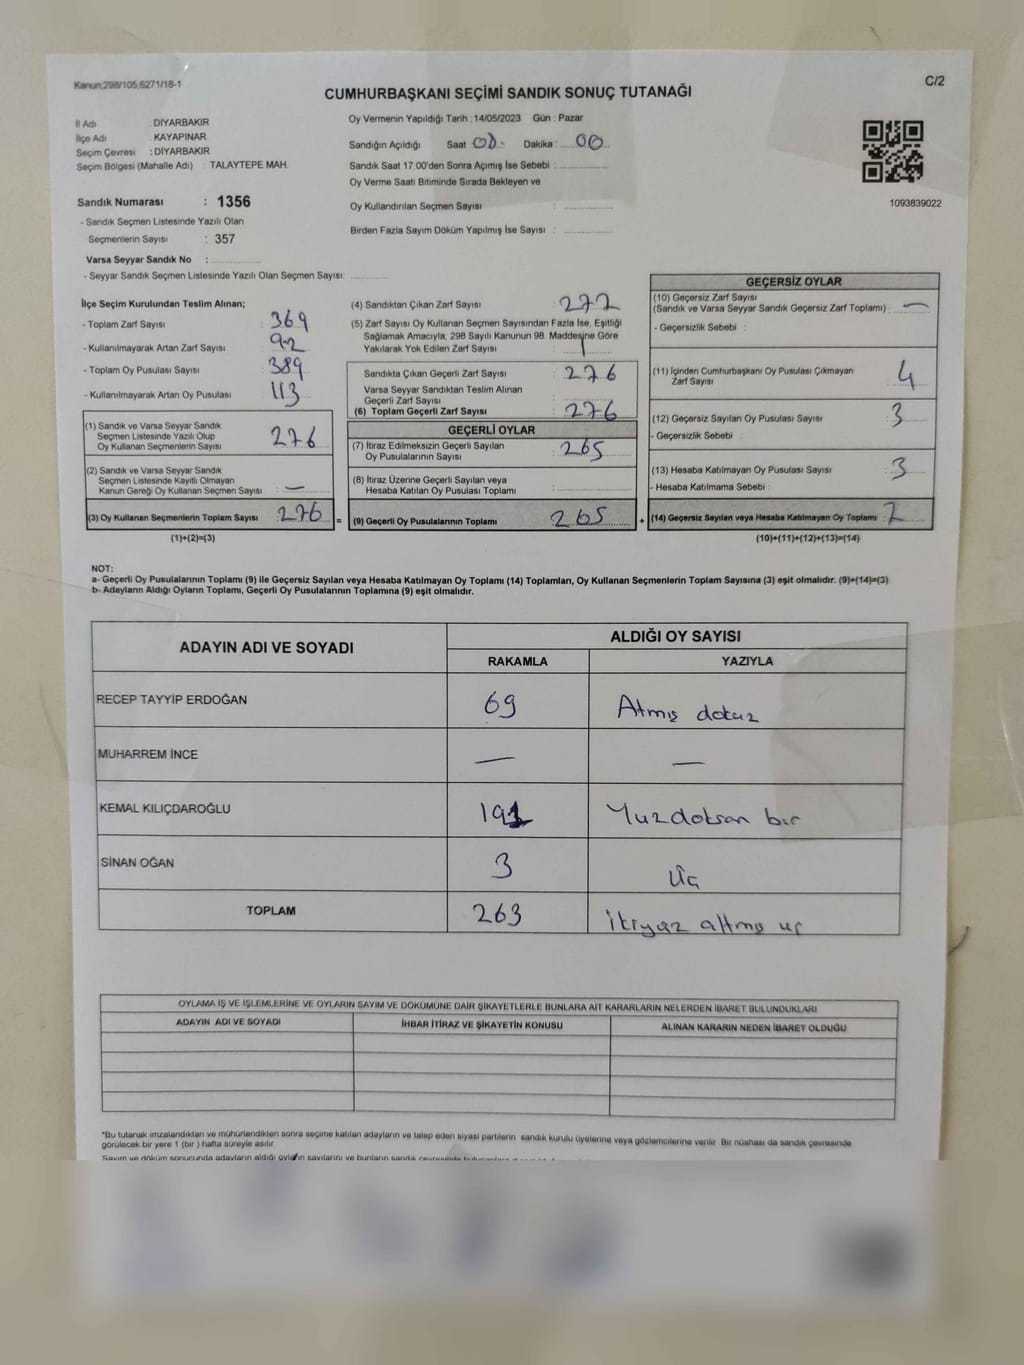 Kanun:298/105,6271/18-1
C/2
CUMHURBAŞKANI SEÇİMİ SANDIK SONUÇ TUTANAĞI
İl Adı : DİYARBAKIR
İlçe Adı : KAYAPINAR
Seçim Çevresi : DİYARBAKIR
Seçim Bölgesi (Mahalle Adı) : TALAYTEPE MAH.
Sandık Numarası : 1356
- Sandık Seçmen Listesinde Yazılı Olan
Seçmenlerin Sayısı : 357
Varsa Seyyar Sandık No :
- Seyyar Sandık Seçmen Listesinde Yazılı Olan Seçmen Sayısı:
Oy Vermenin Yapıldığı Tarih : 14/05/2023 Gün : Pazar
Sandığın Açıldığı Saat 08 Dakika : 00
Sandık Saat 17:00'den Sonra Açımış İse Sebebi :
Oy Verme Saati Bitiminde Sırada Bekleyen ve
Oy Kullandırılan Seçmen Sayısı :
Birden Fazla Sayım Döküm Yapılmış İse Sayısı :
1093839022
İlçe Seçim Kurulundan Teslim Alınan;
- Toplam Zarf Sayısı : 369
- Kullanılmayarak Artan Zarf Sayısı : 92
- Toplam Oy Pusulası Sayısı : 389
- Kullanılmayarak Artan Oy Pusulası : 113
(1) Sandık ve Varsa Seyyar Sandık
Seçmen Listesinde Yazılı Olup
Oy Kullanan Seçmenlerin Sayısı : 276
(2) Sandık ve Varsa Seyyar Sandık
Seçmen Listesinde Kayıtlı Olmayan
Kanun Gereği Oy Kullanan Seçmen Sayısı : —
(3) Oy Kullanan Seçmenlerin Toplam Sayısı : 276 =
(1)+(2)=(3)
(4) Sandıktan Çıkan Zarf Sayısı : 277
(5) Zarf Sayısı Oy Kullanan Seçmen Sayısından Fazla İse, Eşitliği
Sağlamak Amacıyla, 298 Sayılı Kanunun 98. Maddesine Göre
Yakılarak Yok Edilen Zarf Sayısı : 1
Sandıkta Çıkan Geçerli Zarf Sayısı : 276
Varsa Seyyar Sandıktan Teslim Alınan
Geçerli Zarf Sayısı :
(6) Toplam Geçerli Zarf Sayısı : 276
GEÇERLİ OYLAR
(7) İtiraz Edilmeksizin Geçerli Sayılan
Oy Pusulalarının Sayısı : 265
(8) İtiraz Üzerine Geçerli Sayılan veya
Hesaba Katılan Oy Pusulası Toplamı :
(9) Geçerli Oy Pusulalarının Toplamı : 265 +
GEÇERSİZ OYLAR
(10) Geçersiz Zarf Sayısı
(Sandık ve Varsa Seyyar Sandık Geçersiz Zarf Toplamı) : —
- Geçersizlik Sebebi :
(11) İçinden Cumhurbaşkanı Oy Pusulası Çıkmayan
Zarf Sayısı : 4
(12) Geçersiz Sayılan Oy Pusulası Sayısı : 3
- Geçersizlik Sebebi :
(13) Hesaba Katılmayan Oy Pusulası Sayısı : 3
- Hesaba Katılmama Sebebi :
(14) Geçersiz Sayılan veya Hesaba Katılmayan Oy Toplamı :
(10)+(11)+(12)+(13)=(14)
NOT:
a- Geçerli Oy Pusulalarının Toplamı (9) ile Geçersiz Sayılan veya Hesaba Katılmayan Oy Toplamı (14) Toplamları, Oy Kullanan Seçmenlerin Toplam Sayısına (3) eşit olmalıdır. (9)+(14)=(3)
b- Adayların Aldığı Oyların Toplamı, Geçerli Oy Pusulalarının Toplamına (9) eşit olmalıdır.
ADAYIN ADI VE SOYADI ALDIĞI OY SAYISI
RAKAMLA YAZIYLA
RECEP TAYYİP ERDOĞAN 69 Atmış dokuz
MUHARREM İNCE — —
KEMAL KILIÇDAROĞLU 191 Yuzdoksan bır
SİNAN OĞAN 3 Üç
TOPLAM 263 ikiyüz altmış üç
OYLAMA İŞ VE İŞLEMLERİNE VE OYLARIN SAYIM VE DÖKÜMÜNE DAİR ŞİKAYETLERLE BUNLARA AİT KARARLARIN NELERDEN İBARET BULUNDUKLARI
ADAYIN ADI VE SOYADI İHBAR İTİRAZ VE ŞİKAYETİN KONUSU ALINAN KARARIN NEDEN İBARET OLDUĞU
*Bu tutanak imzalandıktan ve mühürlendikten sonra seçime katılan adayların ve talep eden siyasi partilerin sandık kurulu üyelerine veya gözlemcilerine verilir. Bir nüshası da sandık çevresinde
görülecek bir yere 1 (bir) hafta süreyle asılır.
Sayım ve döküm sonucunda adayların aldığı oyların sayılarını ve bunların sandık